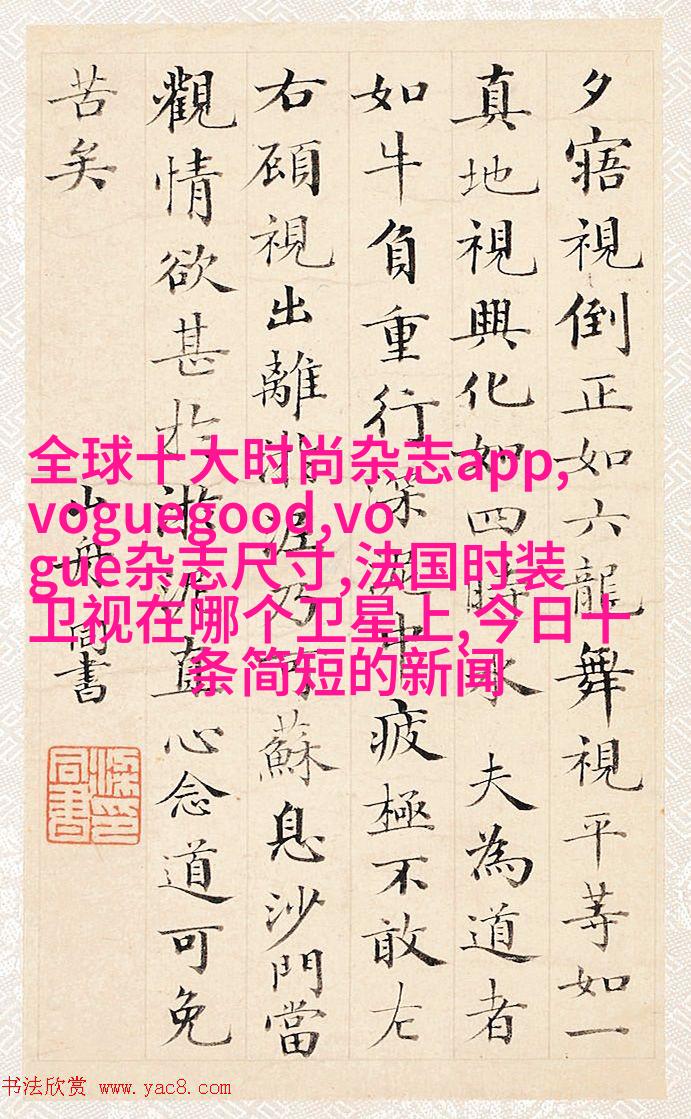 夕寤視倒正如六龍舞視平等如一
真地視興化如四時木 夫為道者
如牛負重行深泥中疲極不敢左
右顧視出離淤泥乃可蘇息沙門當
觀情欲甚於淤泥直心念道可免
苦矣
山舟同書
全球十大时尚杂志app,
voguegood,vo
gue杂志尺寸,法国时装
卫视在哪个卫星上,今日十
条简短的新闻
书法欣赏 www.yac8.com